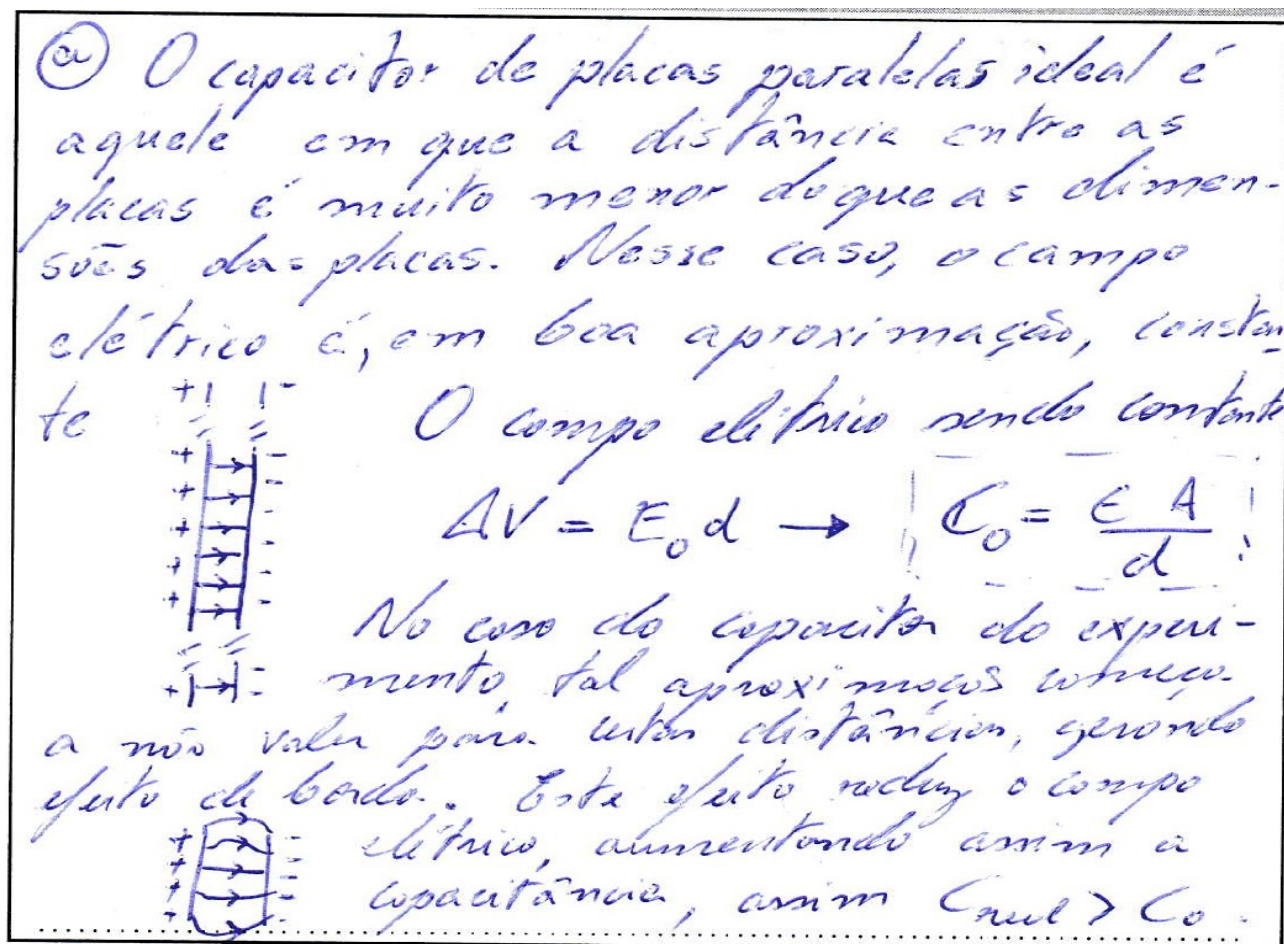 a) O capacitor de placas paralelas ideal é
aquele em que a distância entre as
placas é muito menor do que as dimen-
sões das placas. Nesse caso, o campo
elétrico é, em boa aproximação, constan-
te
O campo elétrico sendo constante
ΔV = E₀d → C₀ = ε A / d
No caso do capacitor do experi-
mento, tal aproximação começa
a não valer para certas distâncias, gerando
efeito de borda. Este efeito reduz o campo
elétrico, aumentando assim a
capacitância, assim Creal > C₀.